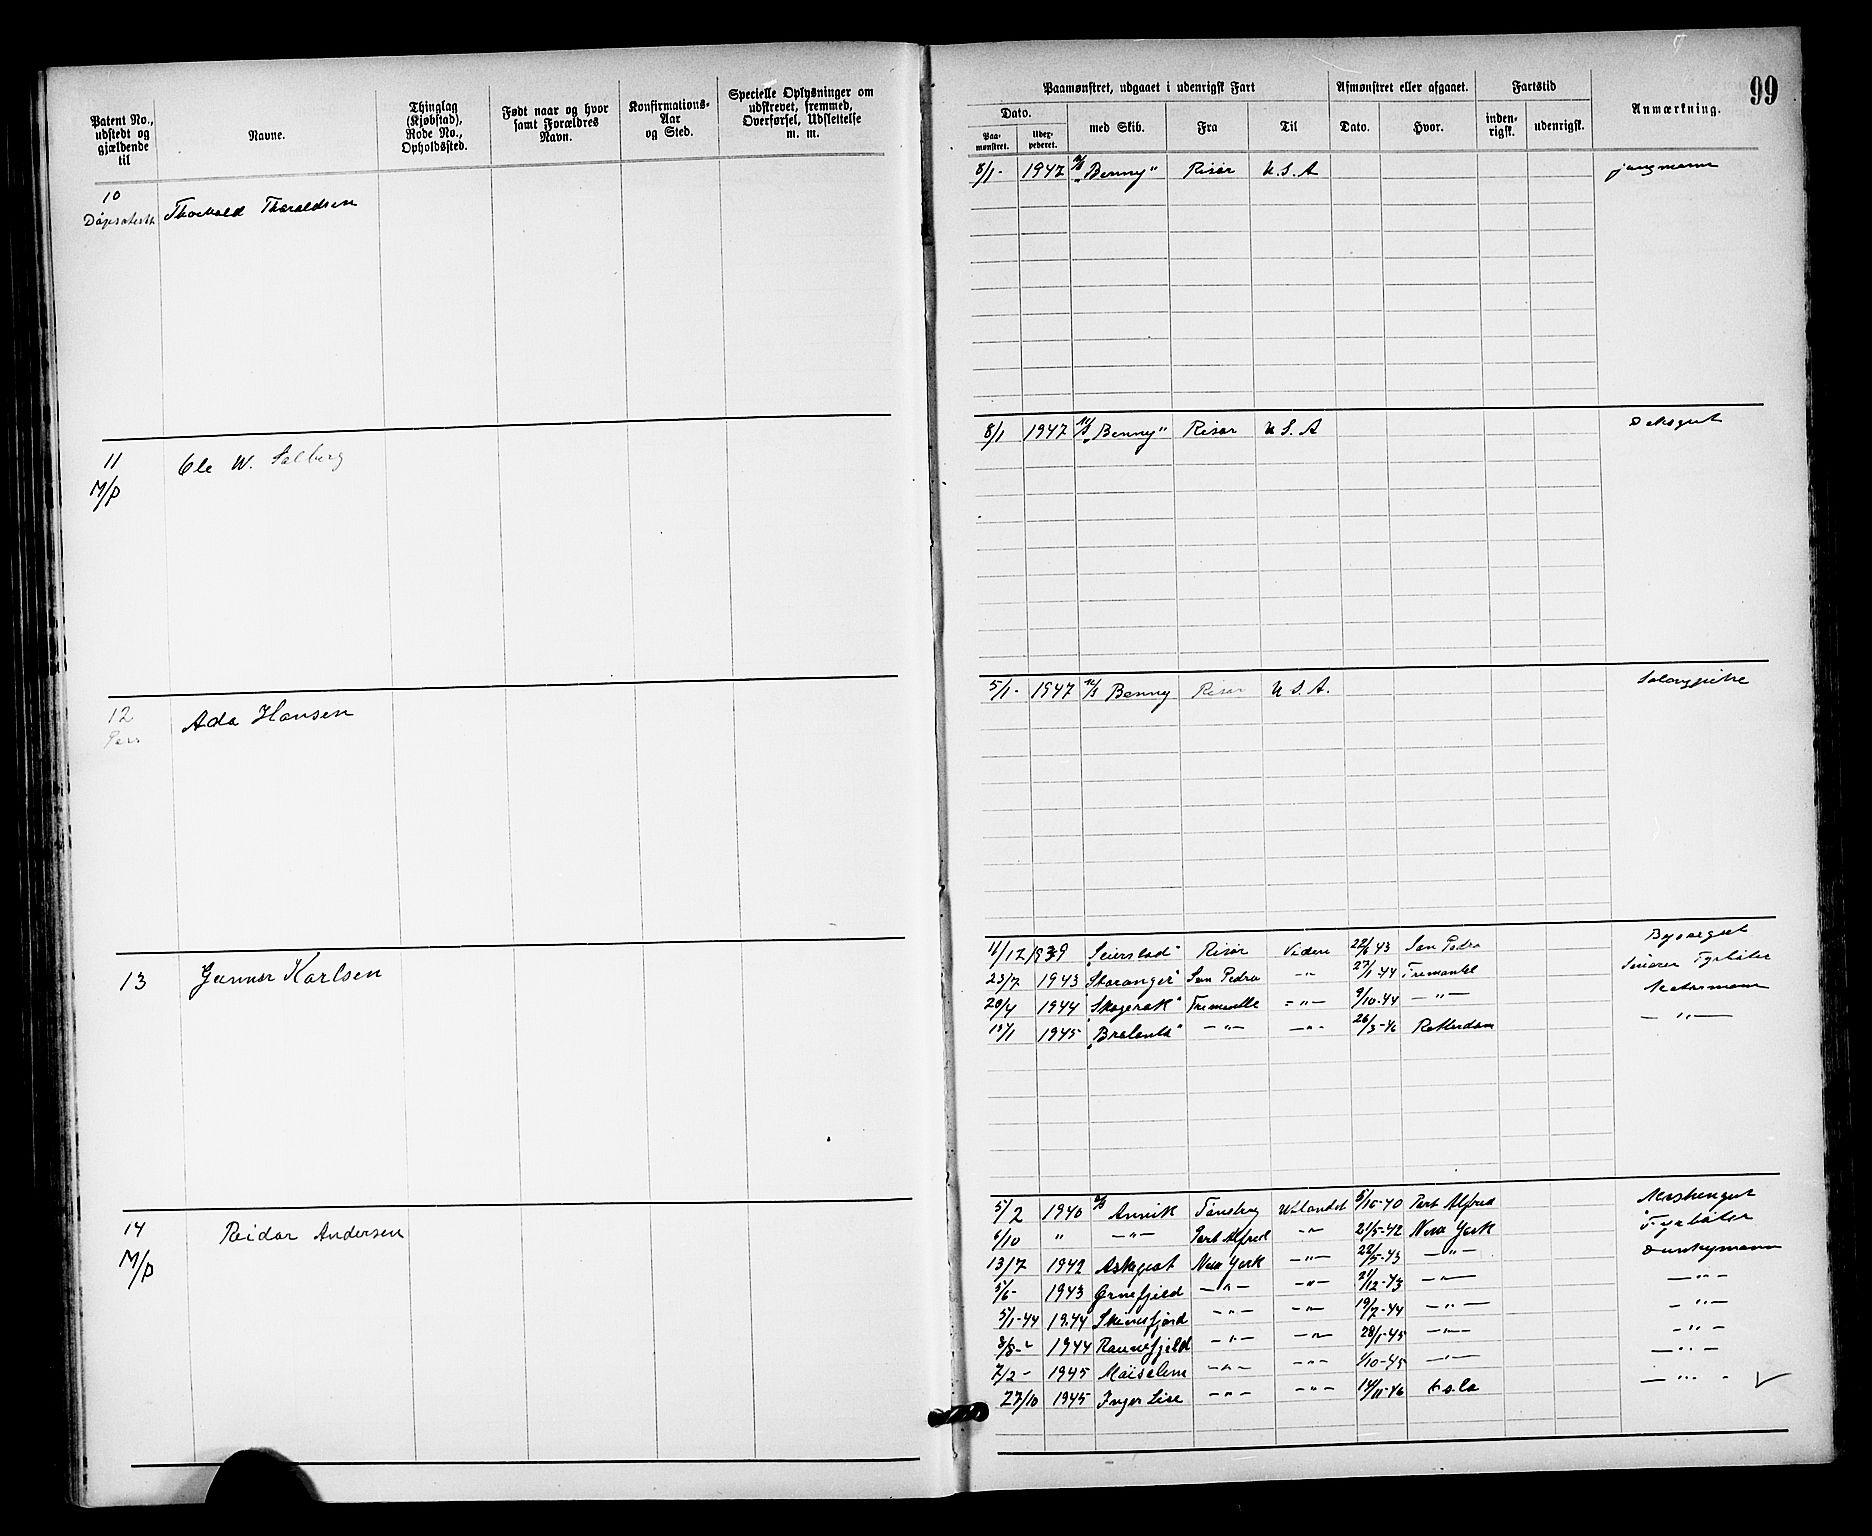 99
Patent No., udstedt og gjældende til
Navne.
Thinglag (Kjøbstad), Rode No., Opholdssted.
Født naar og hvor samt Forældres Navn.
Konfirmations-Aar og Sted.
Specielle Oplysninger om udskrevet, fremmed, Overførsel, Udslettelse m. m.
Paamønstret, udgaaet i udenrigsk Fart
Afmønstret eller afgaaet.
Fartstid
Anmærkning.
Dato.
Paa-mønstret.
med Skib.
Fra
Til
Dato.
Hvor.
inden-rigsk.
udenrigsk.
10 Thorvald Thoraldsen 8/1- 1947 M/S "Benny" Risør U.S.A jungmann
11 Ole W. Solberg 8/1 1947 M/S "Benny" Risør U.S.A Deksgut
M/P
12 Ada Hansen 5/1- 1947 M/S Benny Risør U.S.A. Salongpike
13 Gunnar Karlsen 11/12 1939 "Seierstad" Risør Videre 22/6 43 San Pedro Byssegut
23/7 1943 "Storanger" San Pedro -"- 27/1-44 Fremantel Fyrbøter
20/4 1944 "Skagerak" Fremantle -"- 9/10-44 -"- Motormann
15/1 1945 "Bralanta" -"- -"- 26/3-46 Rotterdam -"-
14 Reidar Andersen 5/2 1940 M/S Annik Tønsberg Utlandet 5/10-40 Port Alfred Maskingut
M/P 6/10 " -"- Port Alfred -"- 21/5-42 New York Fyrbøter
13/7 1942 Askepot New York -"- 22/5-43 -"- Dunkeymann
5/6- 1943 Ørnefjeld -"- -"- 21/12-43 -"- -"-
5/1-44 1944 Skiensfjord -"- -"- 19/7-44 -"- -"-
8/8- 1944 Ravnefjeld -"- -"- 28/1-45 -"- -"-
7/2- 1945 Moiselene -"- -"- 1/10-45 -"- -"-
27/10 1945 Inger Lise -"- -"- 14/11-46 Oslo -"-